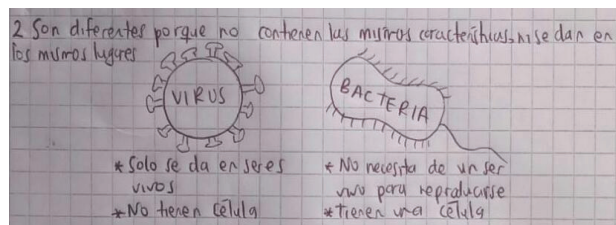 2 Son diferentes porque no contienen las mismas características, ni se dan en
los mismos lugares
VIRUS
BACTERIA
* Solo se da en seres
vivos
* No tienen célula
* No necesita de un ser
vivo para reproducirse
* Tienen una célula